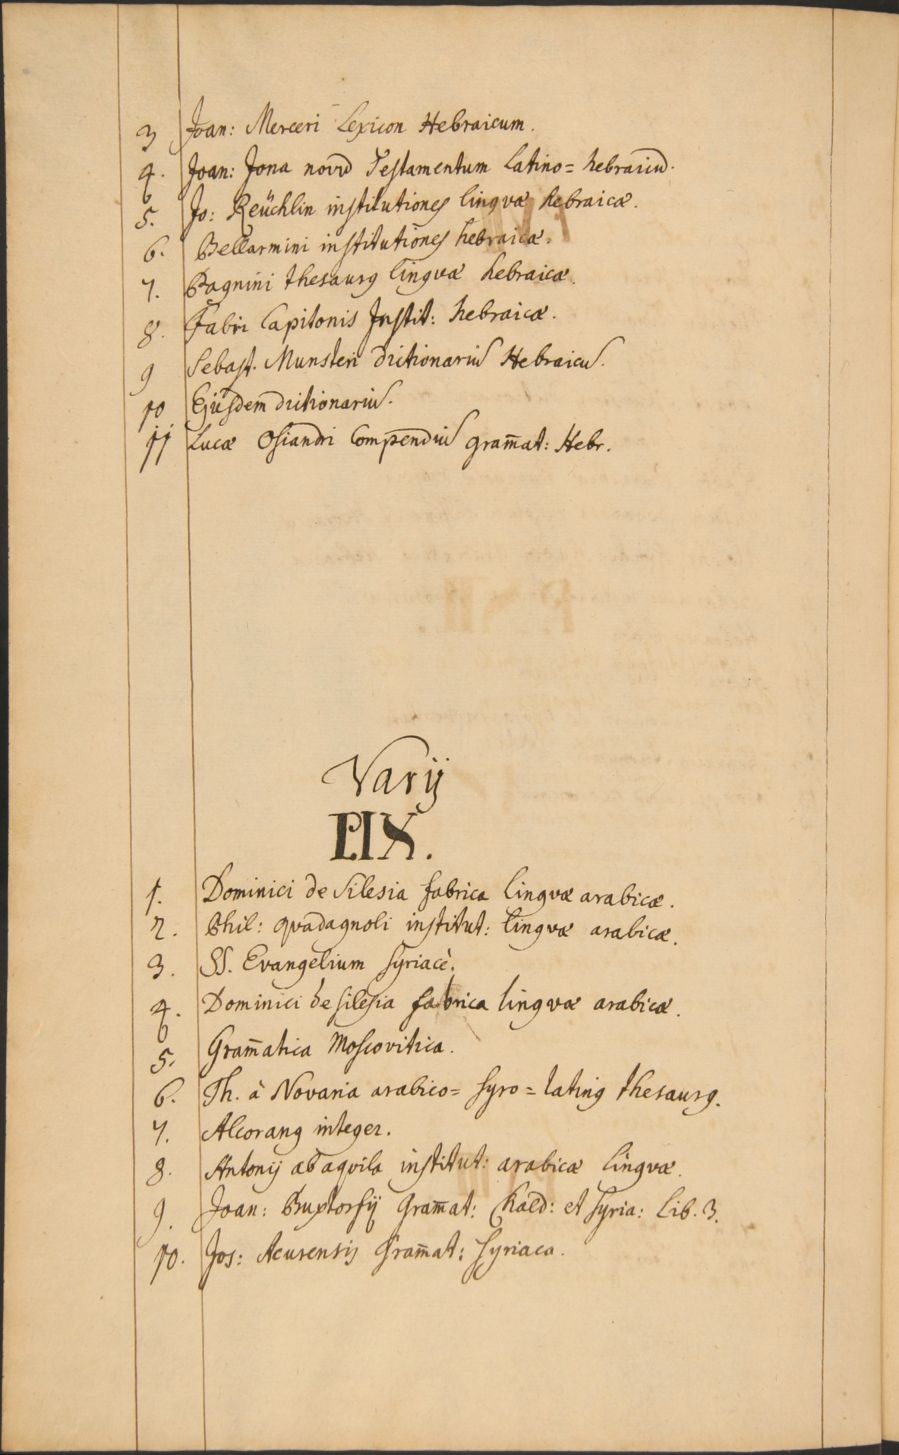 3 Joan: Merceri Lexicon Hebraicum.
4. Joan: Jona novū Testamentum Latino= hebraicū.
5. Jo: Reüchlin institutiones lingvæ hebraicæ.
6. Bellarmini institutiones hebraicæ.
7. Pagnini thesaurq lingvæ hebraicæ.
8. Fabri Capitonis Instit: hebraicæ.
9 Sebast. Munsteri dictionariū Hebraicū.
10 Ejusdem dictionariū.
11 Lucæ Osiandri Compendiū gram̄at: Hebr.
Varij
P.IX.
1. Dominici de Silesia fabrica lingvæ arabicæ.
2. Phil: qvadagnoli institut: lingvæ arabicæ.
3. SS. Evangelium Syriacè.
4. Dominici de silesia fabrica lingvæ arabicæ.
5. Gram̄atica Moscovitica.
6. Th. à Novaria arabico= Syro= latinq thesaurq.
7. Alcoranq integer.
8. Antonij ab aqvila institut: arabicæ lingvæ.
9. Joan: Buxtorfij Gram̄at: Chald: et Syria: Lib. 3.
10. Jos: Acurensis Gram̄at: Syriaca.